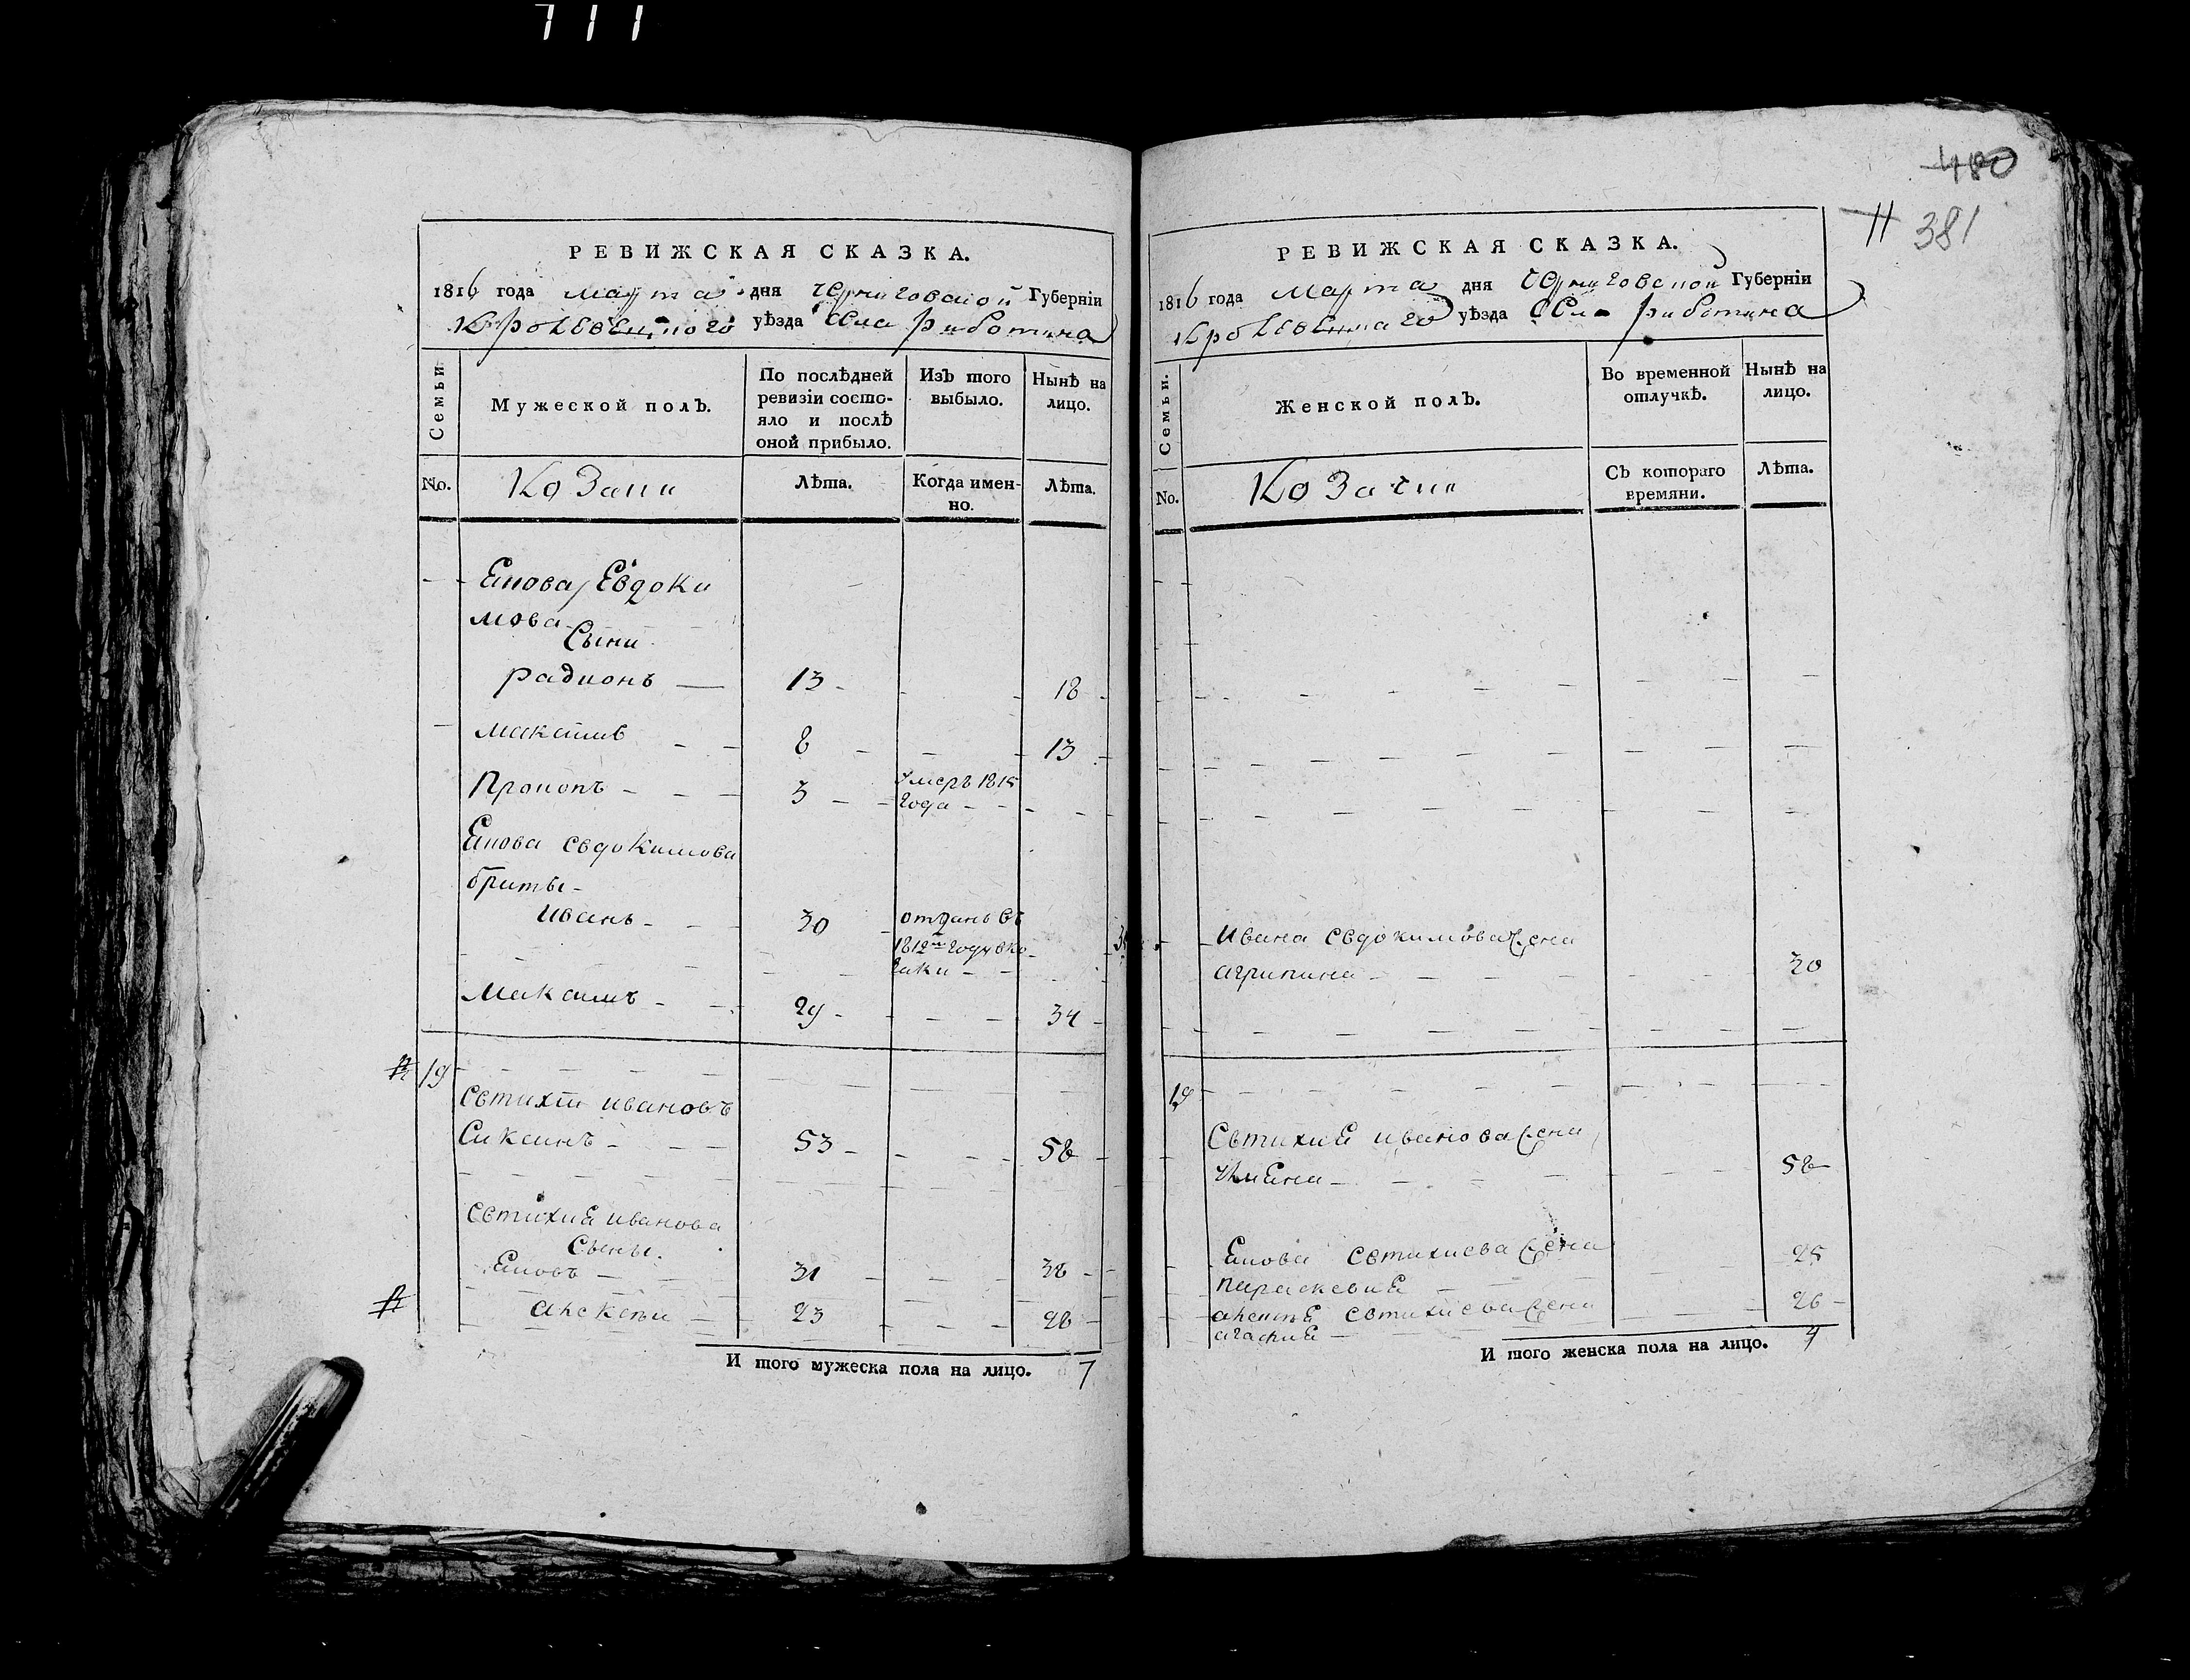 711
480
381
РЕВИЖСКАЯ СКАЗКА.
1816 года марта дня Черниговской Губерніи
Кролевецкого уѣзда Села риботина
Семьи.
Мужеской полЪ.
По послѣдней ревизіи состо-
яло и послѣ
оной прибыло.
ИзЪ того
выбыло.
НынѣЪ на
лицо.
No.
Козаки
Лѣта.
Когда имен-
но.
Лѣта.
Екова Евдоки
мова
Сыни
радионъ 13 18
максимъ 8 13
Прокопъ 3 умеръ 1815
года
Екова евдокимова
браты
иванъ 30 отданъ въ
1812м году вко
заки
Максимъ 29 34
19
Евтихій ивановъ
Сиксинъ 53 58
Евтихиа иванова
Сыны.
Яковъ 31 38
алексѣи 23 28
И того мужеска пола на лицо. 7
РЕВИЖСКАЯ СКАЗКА.
1816 года марта дня Черниговской Губерніи
Кролевецкаго уѣзда Села риботина
Семьи.
Женской полЪ.
Во временной
отлучкѣ.
Нынѣ на
лицо.
No.
Козачки
СЪ котораго
времяни.
Лѣта.
ивана евдокимова жена
агрипина 30
19
Евтихиа иванова жена
58
Екова евтихиева жена 25
параскевиа
евтихиева жена 26
агафиа
И того женска пола на лицо. 4